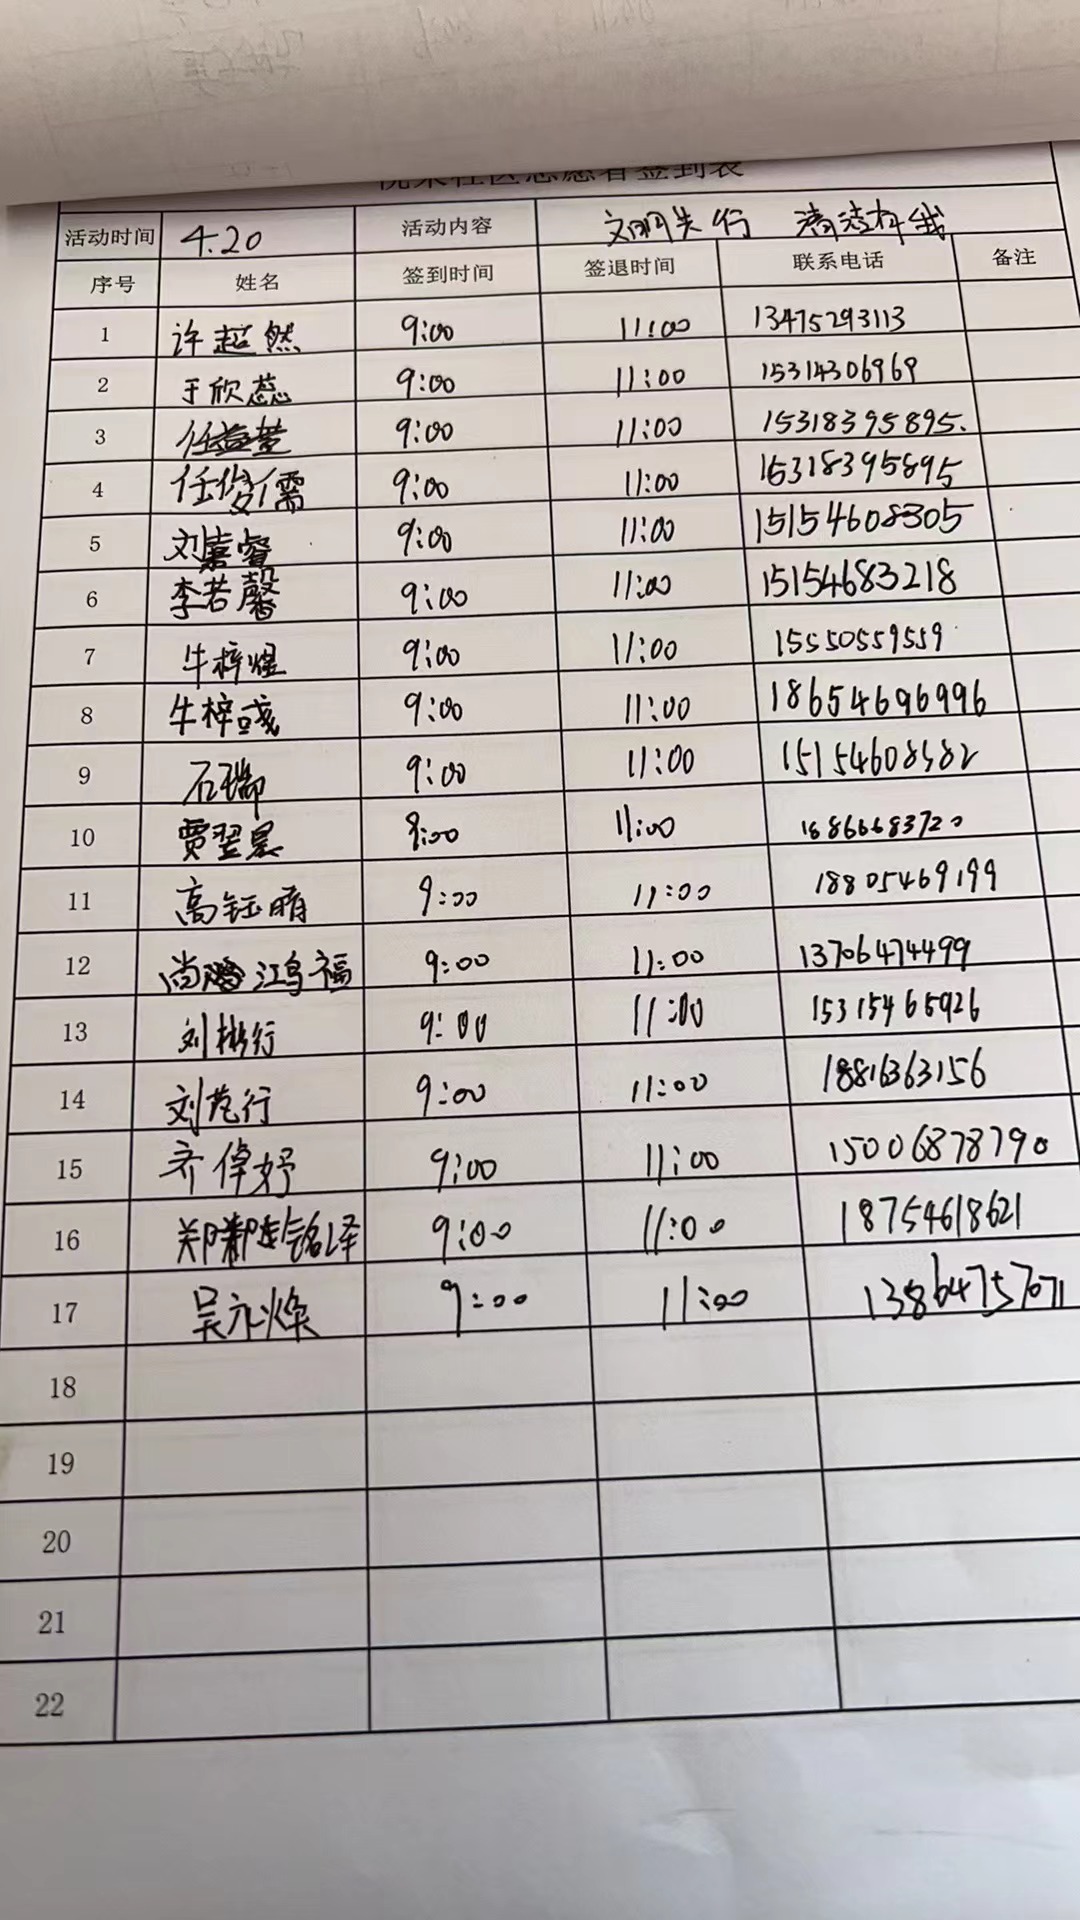 社区志愿者签到表
活动时间 4.20 活动内容 文明先行 清洁有我
序号 姓名 签到时间 签退时间 联系电话 备注
1 许超然 9:00 11:00 13475293113
2 于欣蕊 9:00 11:00 15314306969
3 任益萱 9:00 11:00 15318395895.
4 任俊儒 9:00 11:00 15318395895
5 刘嘉睿 9:00 11:00 15154608305
6 李若馨 9:00 11:00 15154683218
7 牛梓煜 9:00 11:00 15550559559
8 牛梓彧 9:00 11:00 18654696996
9 石瑞 9:00 11:00 15154608582
10 贾翌晨 9:00 11:00 18866683720
11 高钰晴 9:00 11:00 18805469199
12 尚鸿福 9:00 11:00 13706474499
13 刘彬行 9:00 11:00 15315465926
14 刘范行 9:00 11:00 18816363156
15 齐倬妤 9:00 11:00 15006878790
16 郑铭泽 9:00 11:00 18754618621
17 吴永焕 9:00 11:00 13864757071
18
19
20
21
22